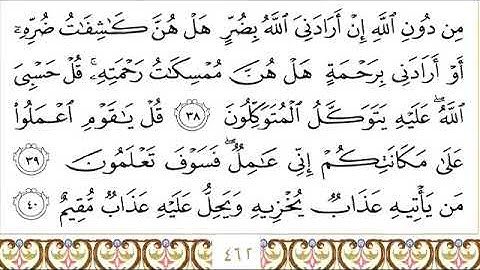 مِن دُونِ ٱللَّهِ إِنْ أَرَادَنِىَ ٱللَّهُ بِضُرٍّ هَلْ هُنَّ كَـٰشِفَـٰتُ ضُرِّهِۦٓ
أَوْ أَرَادَنِى بِرَحْمَةٍ هَلْ هُنَّ مُمْسِكَـٰتُ رَحْمَتِهِۦ ۚ قُلْ حَسْبِىَ
ٱللَّهُ ۖ عَلَيْهِ يَتَوَكَّلُ ٱلْمُتَوَكِّلُونَ ٣٨ قُلْ يَـٰقَوْمِ ٱعْمَلُوا۟
عَلَىٰ مَكَانَتِكُمْ إِنِّى عَـٰمِلٌ ۖ فَسَوْفَ تَعْلَمُونَ ٣٩
مَن يَأْتِيهِ عَذَابٌ يُخْزِيهِ وَيَحِلُّ عَلَيْهِ عَذَابٌ مُّقِيمٌ ٤٠
٤٦٢